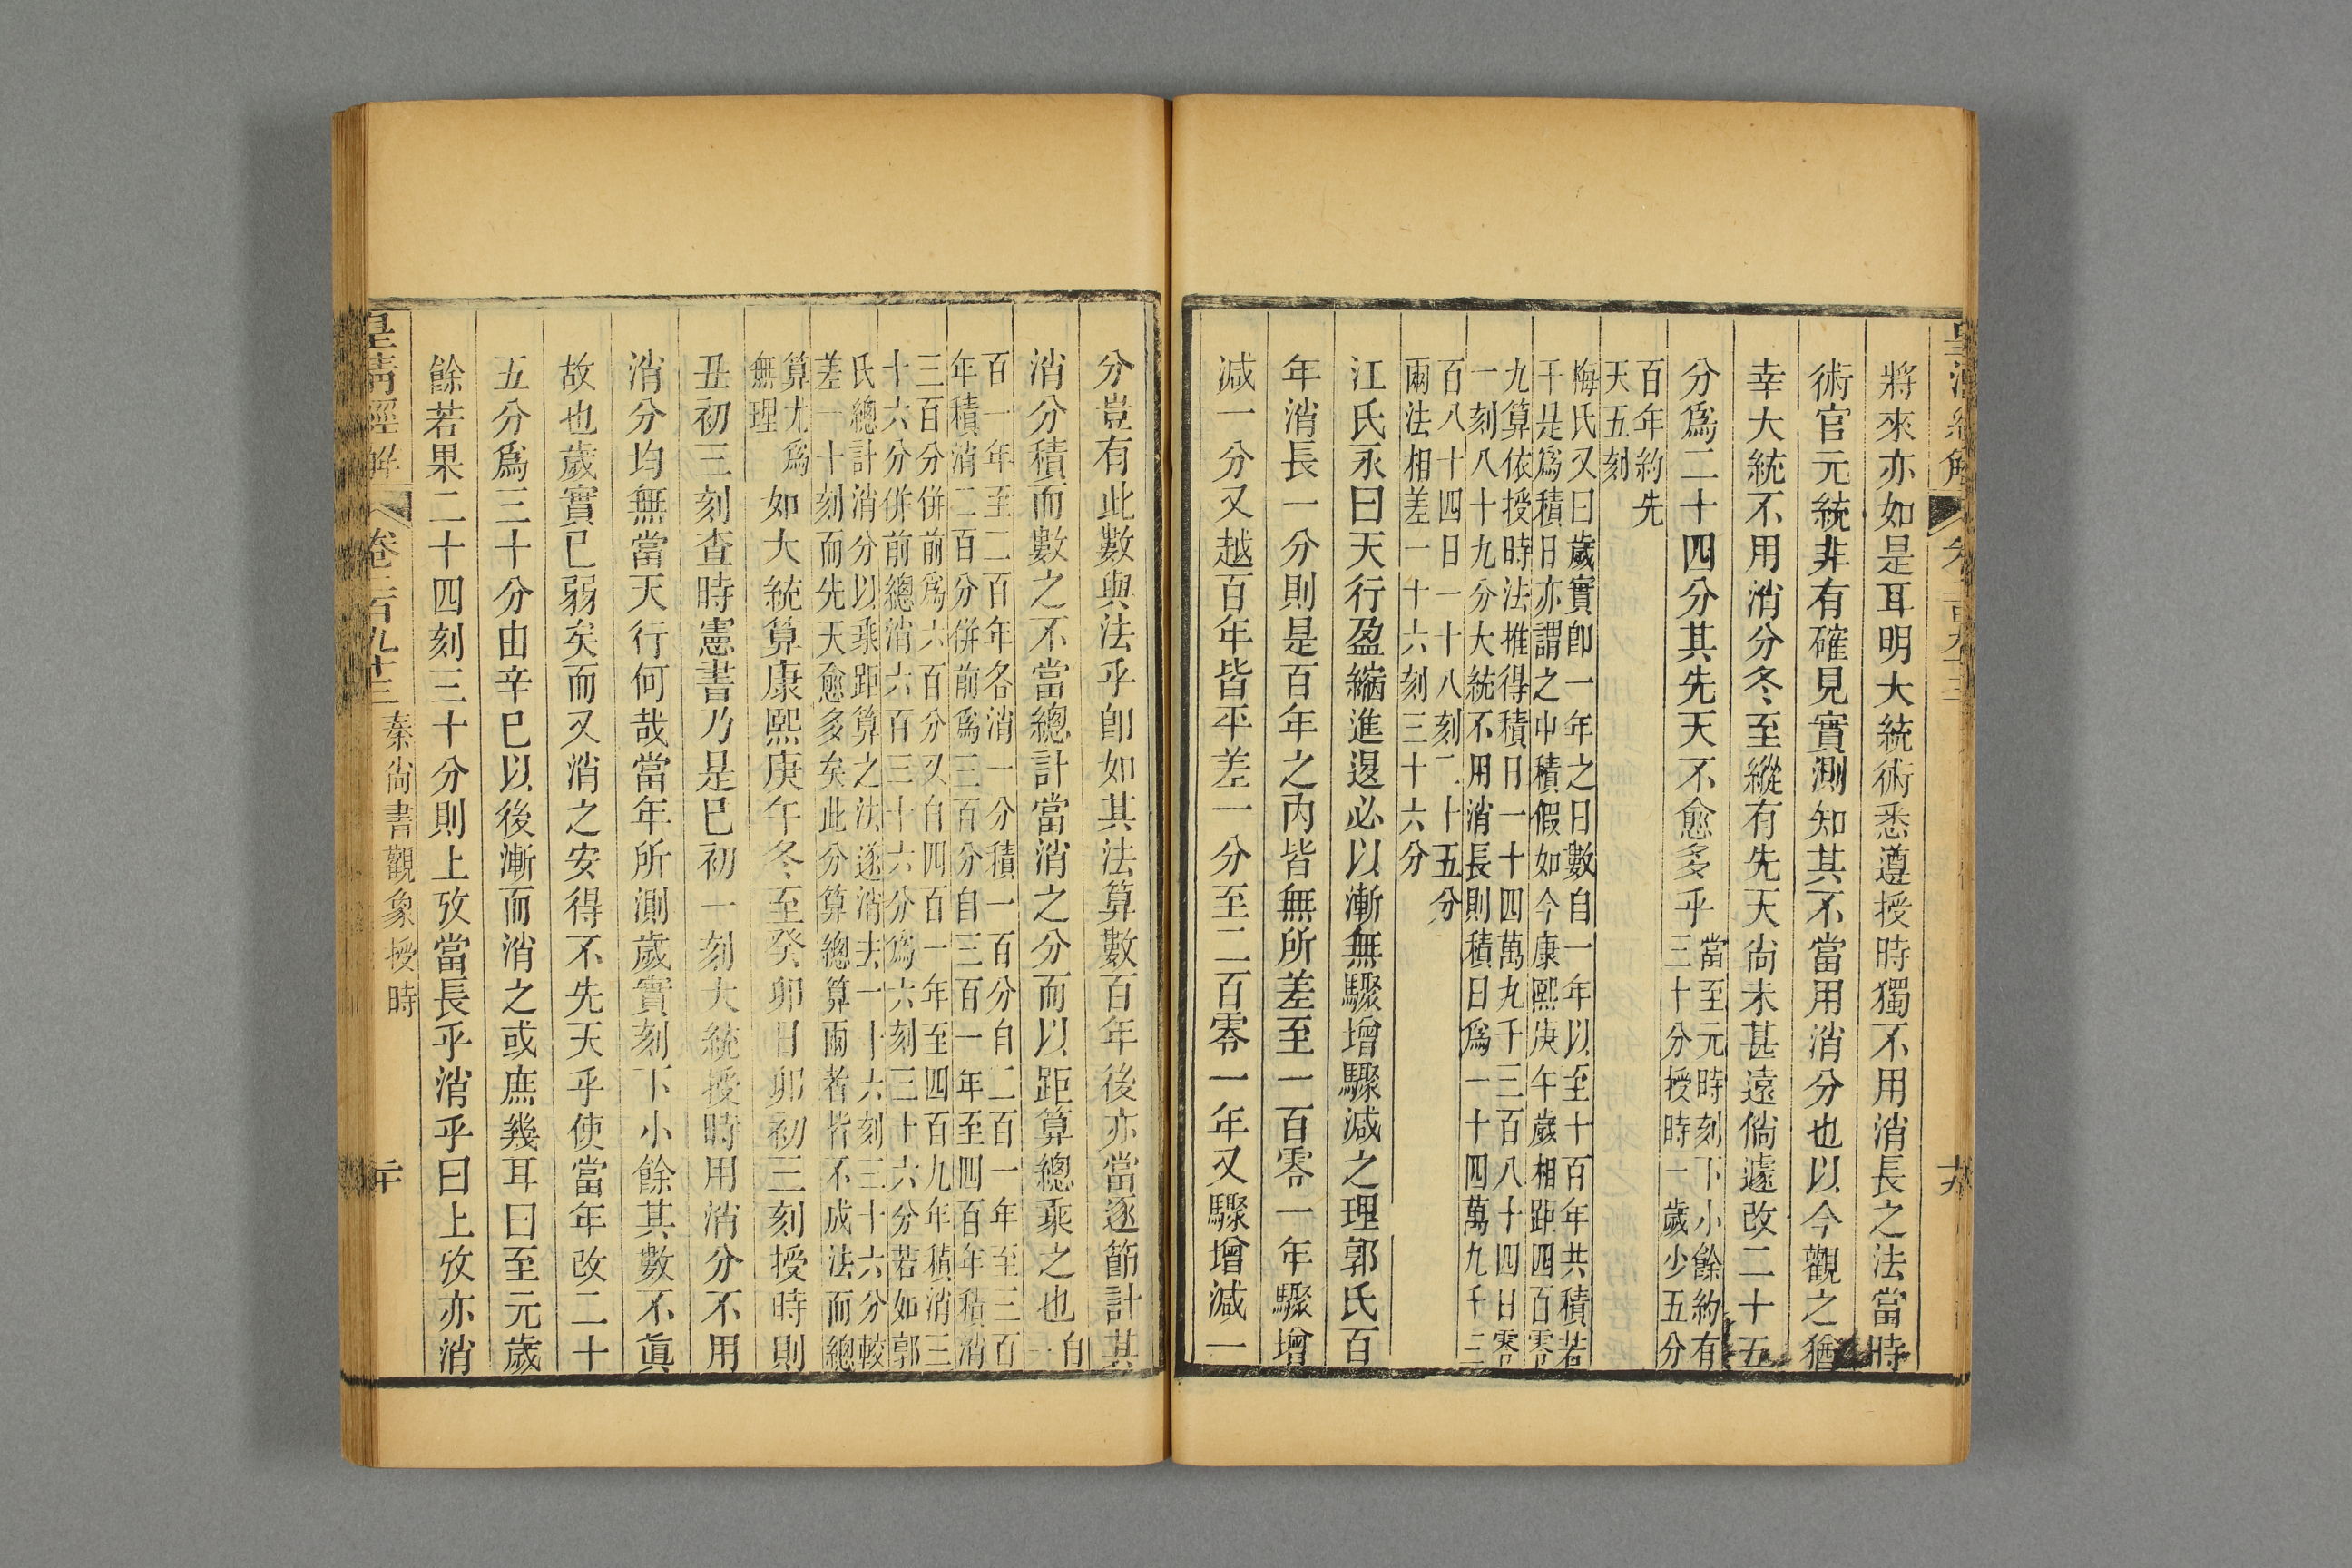 將來亦如是耳明大統術悉遵授時獨不用消長之法當時
術官元統非有確見實測知其不當用消分也以今觀之猶
幸大統不用消分冬至縱有先天尚未甚遠倘遽改二十五
分爲二十四分其先天不愈多乎當至元時刻下小餘約有
三十分授時一歲少五分
百年約先
天五刻
梅氏又曰歲實卽一年之日數自一年以至十百年共積若
干是爲積日亦謂之中積假如今康熙庚午歲相距四百零
九算依授時法推得積日一十四萬九千三百八十四日零
一刻八十九分大統不用消長則積日爲一十四萬九千三
百八十四日一十八刻二十五分
兩法相差一十六刻三十六分
江氏永曰天行盈縮進退必以漸無驟增驟減之理郭氏百
年消長一分則是百年之內皆無所差至一百零一年驟增
減一分又越百年皆平差一分至二百零一年又驟增減一
分豈有此數與法乎卽如其法算數百年後亦當逐節計其
消分積而數之不當總計當消之分而以距算總乘之也自
一
百一年至二百年各消一分積一百分自二百一年至三百
年積消二百分併前爲三百分自三百一年至四百年積消
三百分併前爲六百分又自四百一年至四百九年積消三
十六分併前總消六百三十六分爲六刻三十六分若如郭
氏總計消分以乘距算之法遂消去一十六刻三十六分較
差一十刻而先天愈多矣此分算總算兩者皆不成法而總
算尤爲
無理如大統算康熙庚午冬至癸卯日卯初三刻授時則
丑初三刻查時憲書乃是巳初一刻大統授時用消分不用
消分均無當天行何哉當年所測歲實刻下小餘其數不眞
故也歲實已弱矣而又消之安得不先天乎使當年改二十
五分爲三十分由辛巳以後漸而消之或庶幾耳曰至元歲
餘若果二十四刻三十分則上攷當長乎消乎曰上攷亦消
皇清經解
卷二百九十三
秦尙書觀象授時
二十